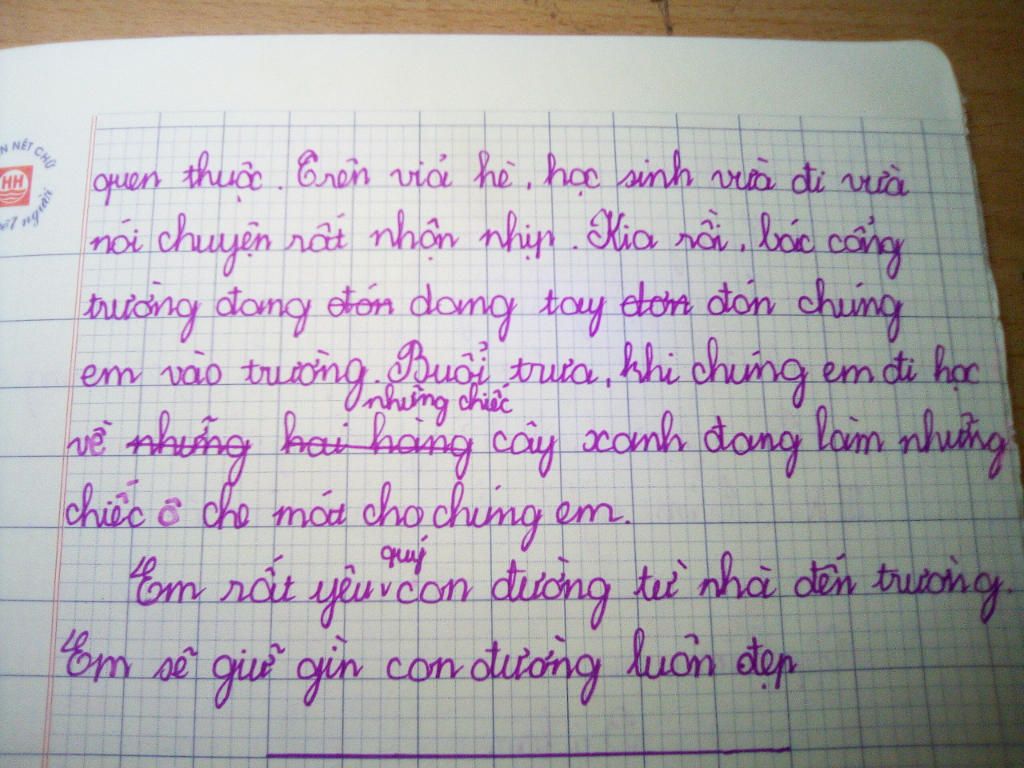 N NÉT CHỮ
HH
nết người
quen thuộc. Trên vỉa hè, học sinh vừa đi vừa
nói chuyện rất nhộn nhịp. Kia rồi, bác cổng
trường đang đón dang tay đón đón chúng
em vào trường. Buổi trưa, khi chúng em đi học
những chiếc
về những hai hàng cây xanh đang làm những
chiếc ô che mát cho chúng em.
quý
Em rất yêu con đường từ nhà đến trường.
Em sẽ giữ gìn con đường luôn đẹp